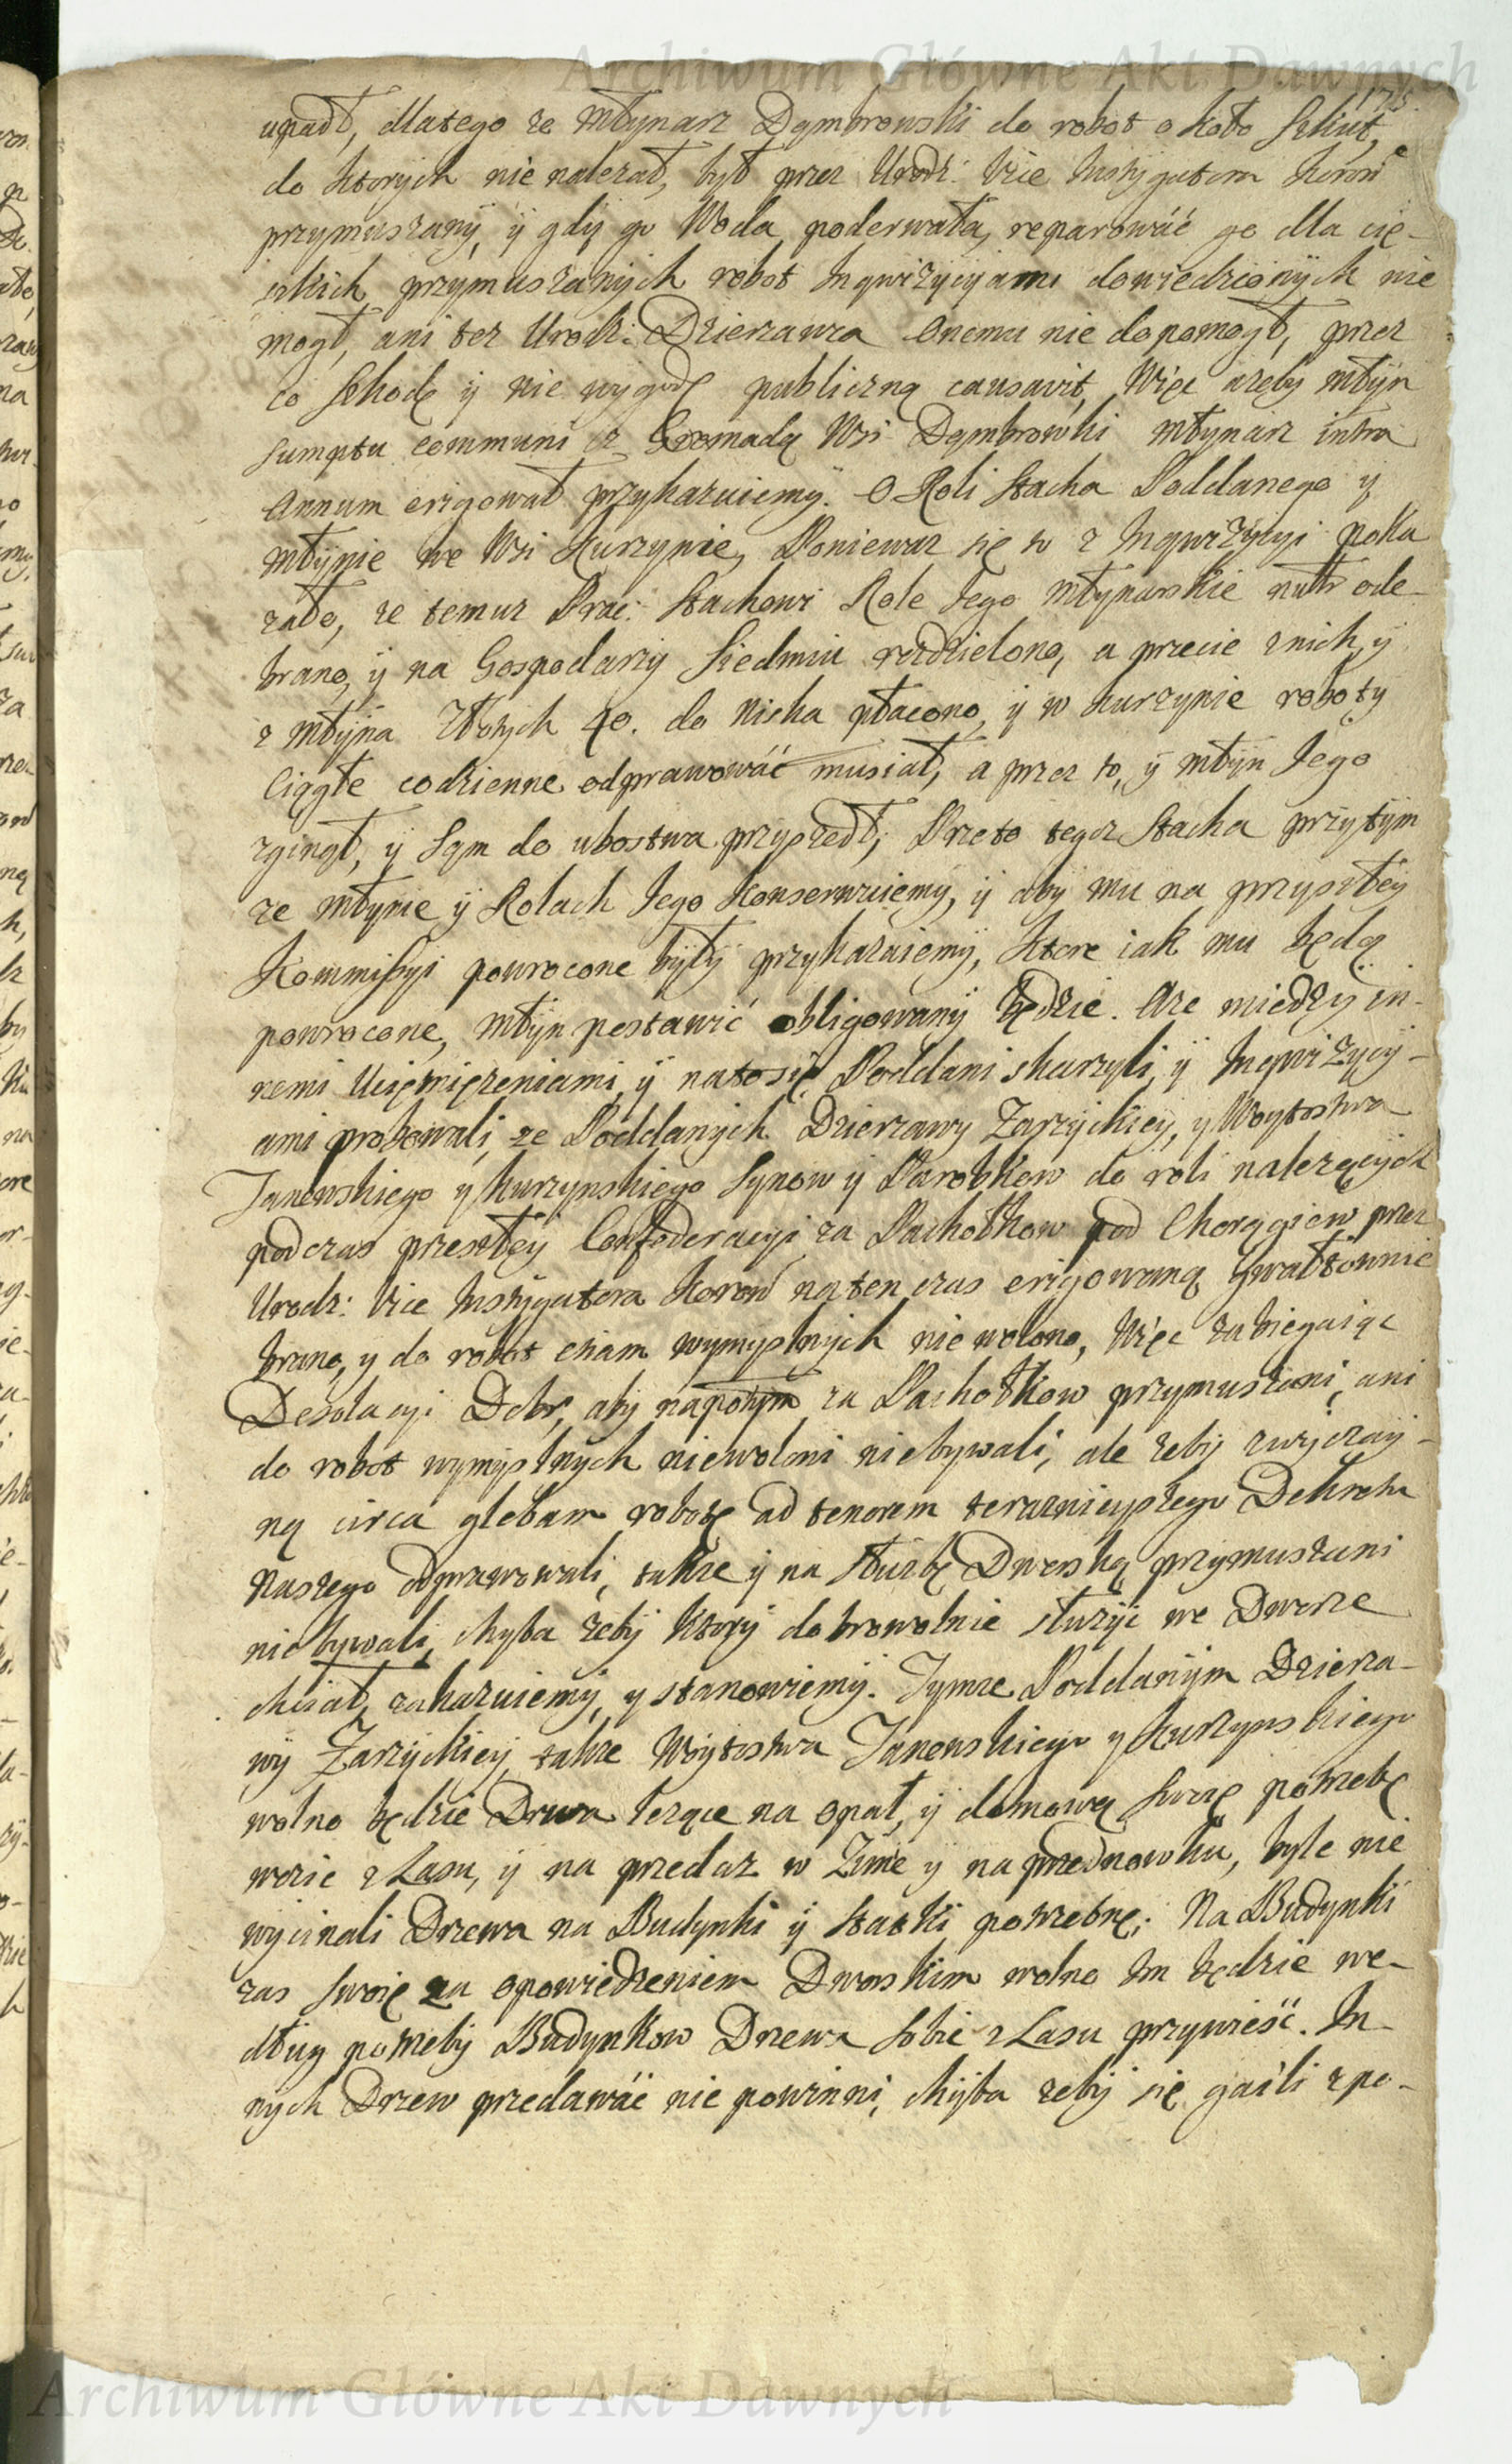 Archiwum Główne Akt Dawnych
175.
upadł, dlatego ze Młynarz Dąmbrowski do robot około Szkut,
do ktorych nie nalezał, był przez Urodz: Vice Instygatora Koron̄
przymuszany, ÿ gdÿ go Woda poderwała, reparowáć go dla cię-
szkich przymuszanÿch robot Inqwizycÿami dowiedzionÿch nie
mogł, ani tez Urodz: Dzierzawca Onemu nie dopomogł, przez
co szkodę ÿ nie wygodę publiczną causavit, Więc azeby młÿn
sumptu communi z Gromadą Wsi Dąmbrowki Młynarz intra
Annum erigował przykazuiemÿ. O Roli Stacha Poddanego ÿ
młÿnie we Wsi Kurzynie, Poniewaz się to z Inqwizycyi poka
zało, ze temuz Prac: Stachowi Role Jego młynarskie ode-
brano, ÿ na Gospodarzÿ Siedmiu rozdzielono, a przecie z nich, ÿ
z młÿna Złotych 40. do Niska płacono, ÿ w Kurzynie roboty
Ciągłe codzienne odprawowáć musiał, a przez to, ÿ młÿn Jego
zginął, ÿ Sąm do ubostwa przyszedł; Przeto tegoz Stacha przytÿm
ze młynie ÿ Rolach Jego Konserwuiemÿ, ÿ abÿ mu na przyszłey
Kommissyi powrocone bÿłÿ przykazuiemÿ, ktore iak mu będą
powrocone, młÿn postawić obligowanÿ będzie. Aze międzÿ in-
nemi Uciemięzeniami, ÿ na to się Poddani skarzyli, ÿ Inqwizycÿ-
ami probowali, ze Poddanych Dzierzawy Zarzyckiey, y Woytostwa
Janowskiego y Kurzynskiego Synow ÿ Parobkow do roli nalezącÿch
podczas przeszłeÿ Confoderacyi za Pachołkow pod Chorągiew przez
Urodz: Vice Instÿgatora Koron̄ na ten czas erigowaną gwałtownie
brano, y do robot eciam wymyslnych niewolono, Więc zabiegaiąc
Desolacyi Dobr, abÿ napotÿm za Pachołkow przymuszani, ani
do robot wymÿslnÿch niewoleni niebywali, ale zebÿ zwyczaÿ-
ną circa glebam robotę ad tenorem teraznieyszego Dekretu
Naszego odprawowali, takze ÿ na słuzbę Dworską przymuszani
niebywali, chyba zebÿ ktorÿ dobrowolnie słuzÿć we Dworze
chciał, zakazuiemy, y stanowiemÿ. Tymze Poddanÿm Dzierza-
wÿ Zarzyckieÿ, takze Wóytostwa Janowskiego y Kurzynskiego
wolno będzie Drwa lezące na opał, ÿ domową swoię potrzebę
wozic z Lasu, ÿ na przedaz w Zimie y na przednowku, byle nie
wycinali Drzewa na Budynki ÿ statki potrzebne; Na Budynki
zas swoie za opowiedzeniem Dworskim wolno Im będzie we-
dług potrzebÿ Budynkow Drzewa sobie z Lasu przywieść. In-
nych Drzew przedawáć nie powinni, chÿba zebÿ się gaili z po-
Archiwum Główne Akt Dawnych